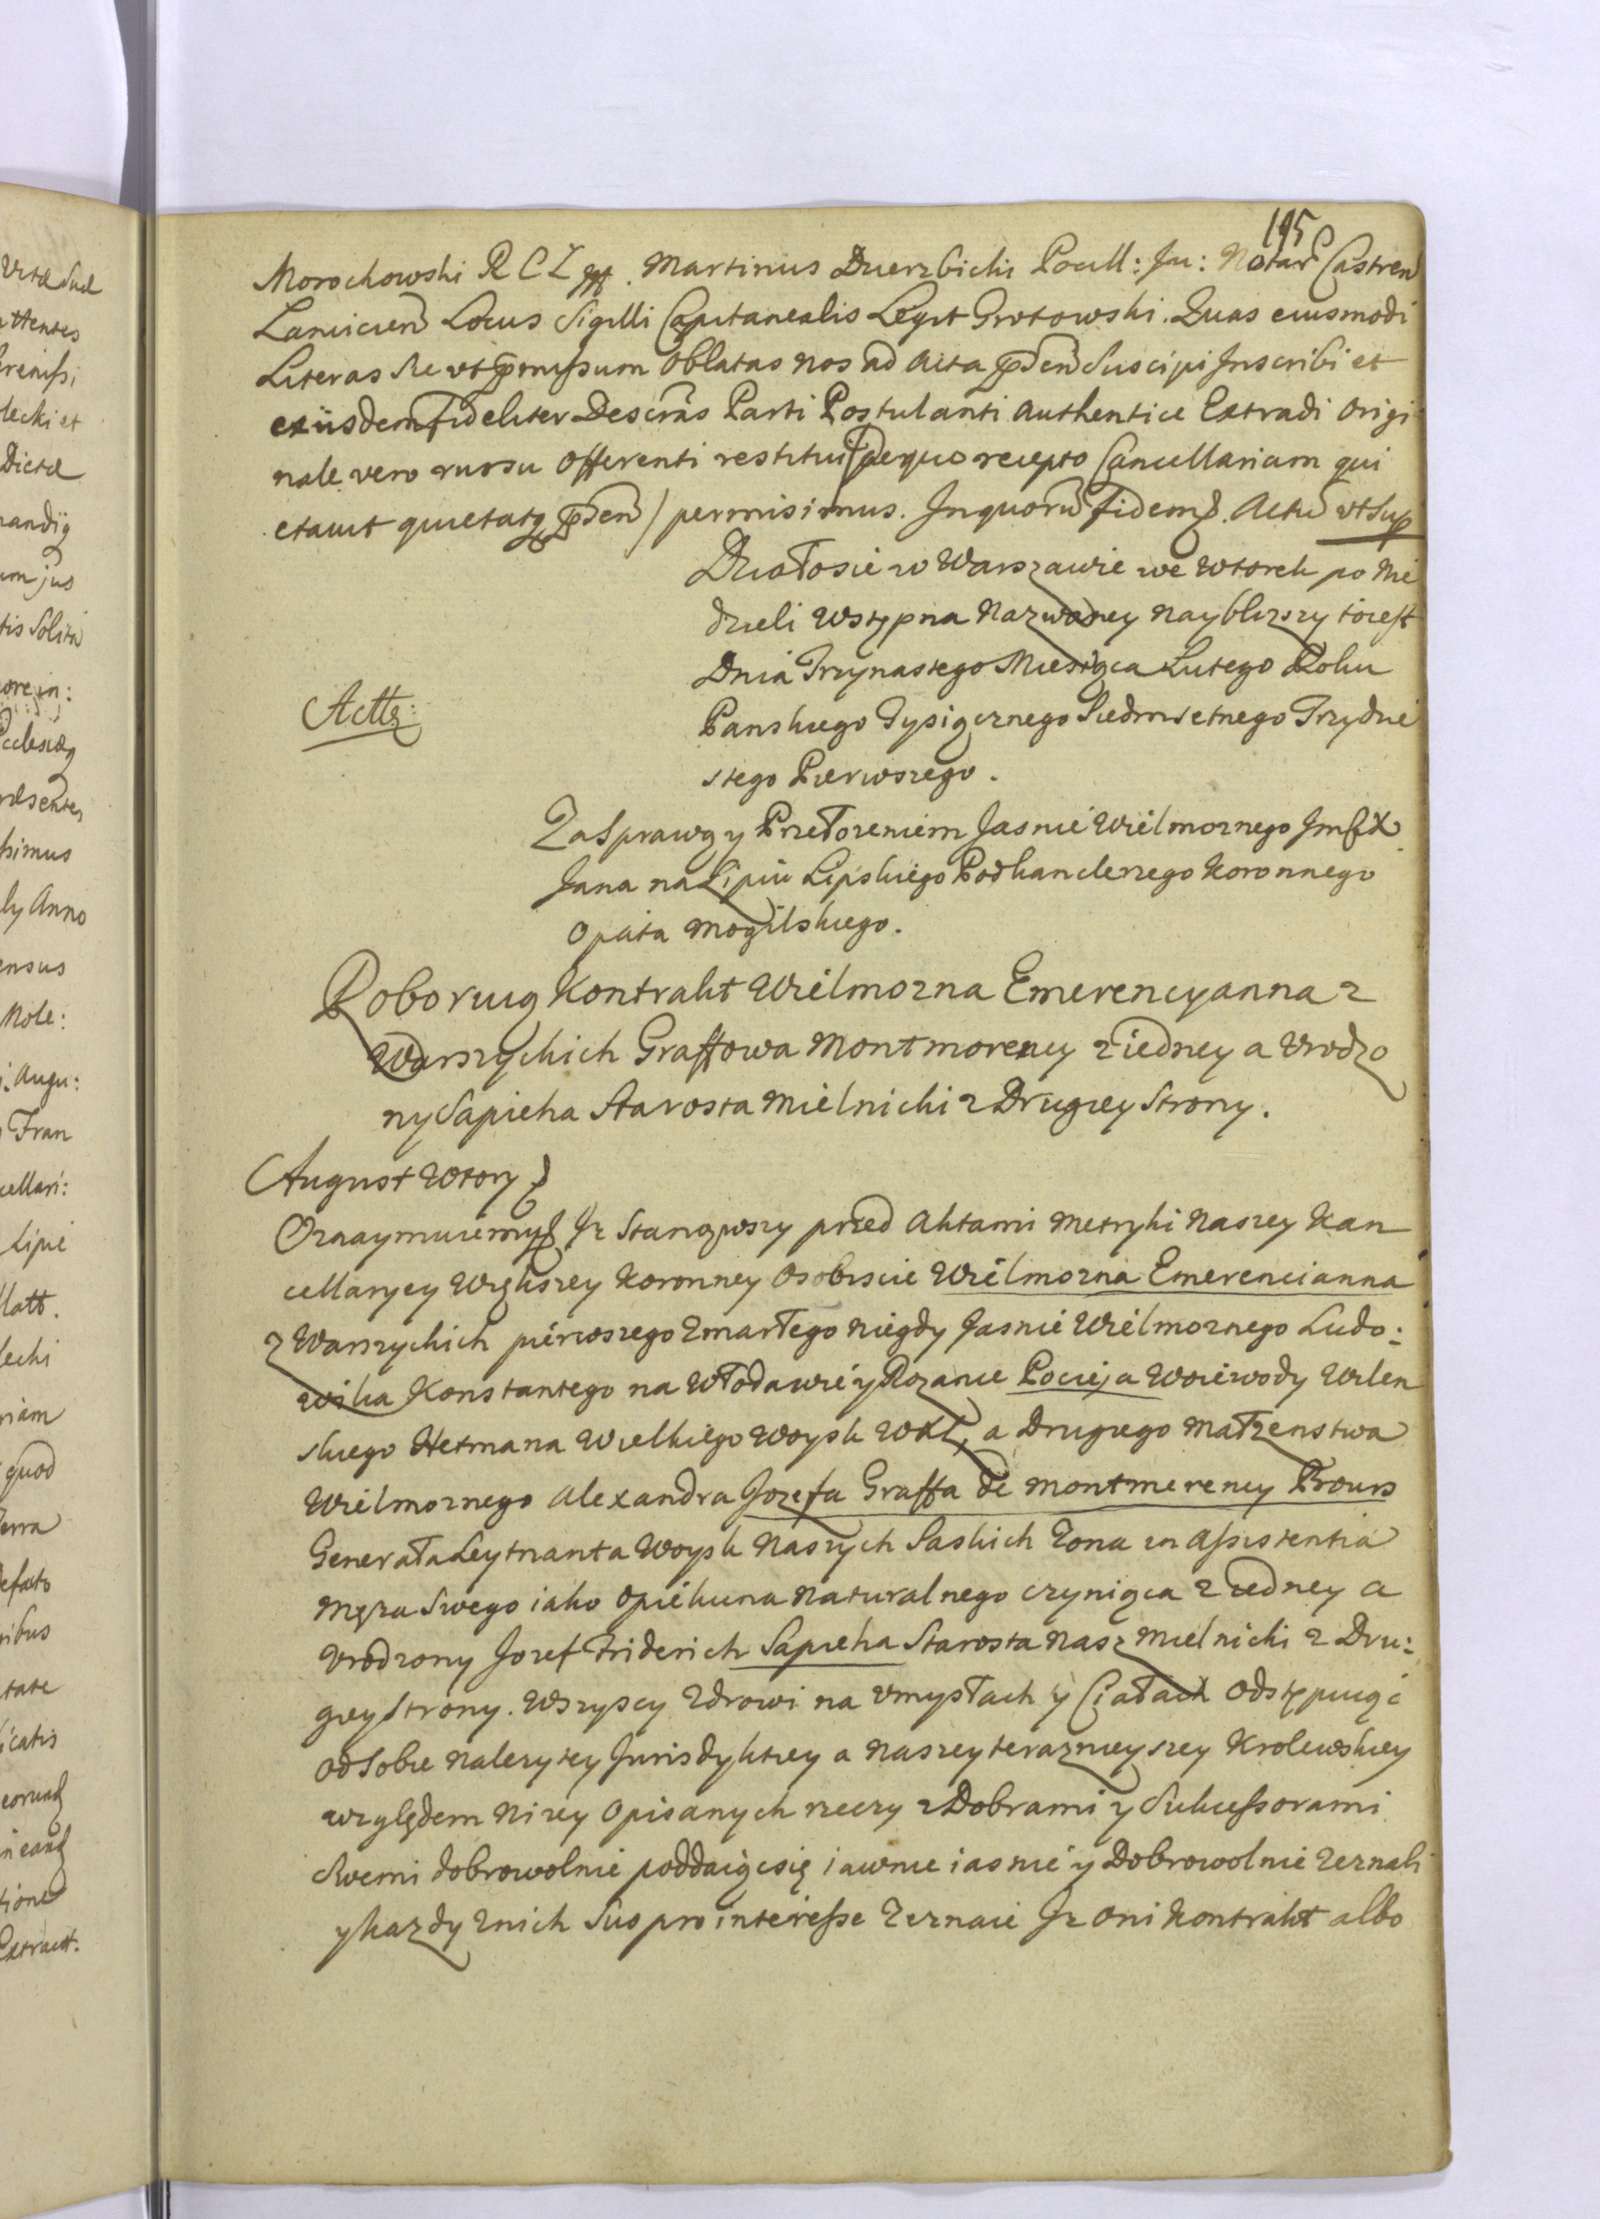 195
Morochowski R C Z mp. Martinus Dzierzbicki Pocill: Ju: Notar Castren
Lanicien Locus Sigilli Capitanealis Legit Grotowski. Quas eiusmodi
Literas Re vt pmissum Oblatas nos ad Acta psen Suscipi Inscribi et
exiisdem fideliter Descras Parti Postulanti authentice Extradi Origi
nale vero rursu Offerenti restitui (de quo recepto Cancellariam qui
etavit quietatq psen) permisimus. In quoru fidem. Actu vt Sup
Działosie w Warszawie we Wtorek po Nie
dzieli Wstępna Nazwaney Naybliszy toiest
Dnia Trzynastego Miesiąca Lutego Roku
Actt:
Panskiego Tysiącznego Siedmsetnego Trzydzie
stego Pierwszego.
Za Sprawą y Przełożeniem Jasnie Wielmoznego Jmsc X
Jana na Lipiu Lipskiego Podkanclerzego Koronnego
Opata Mogilskiego.
Roboruią Kontrakt Wielmozna Emerencyanna z
Warszyckich Graffowa Montmorency z iedney a Vrodzo
ny Sapieha Starosta Mielnicki z Drugiey Strony.
August Wtory
Oznaymuiemy Jz Stanąwszy przed Aktami Metryki Naszey Kan
cellaryey Większey Koronney Osobiscie Wielmozna Emerencianna
z Warszyckich pierwszego Zmarłego niegdy Jasnie Wielmoznego Ludo:
wika Konstantego na Włodawie y Rozance Pocieja Woiewody Wilen
skiego Hetmana Wielkiego Woysk WXL, a Drugiego Małzenstwa
Wielmoznego Alexandra Jozefa Graffa de Montmerency Brours
Generała Leytnanta Woysk Naszych Saskich Zona in Assistentia
Męza Swego iako Opiekuna Naturalnego czyniąca z iedney a
Vrodzony Jozef Friderich Sapieha Starosta Nasz Mielnicki z Dru:
giey Strony. Wszyscy Zdrowi na Vmysłach y Ciałach Odstępuiąc
Od Sobie Nalezytey Jurisdyktiey a Naszey teraznieyszey Krolewskiey
względem Nizey Opisanych rzeczy z Dobrami y Sukcessorami
Swemi dobrowolnie poddaiąc się iawnie iasnie y Dobrowolnie zeznali
y kazdy z nich Suo pro interesse Zeznaie Jz Oni Kontrakt albo